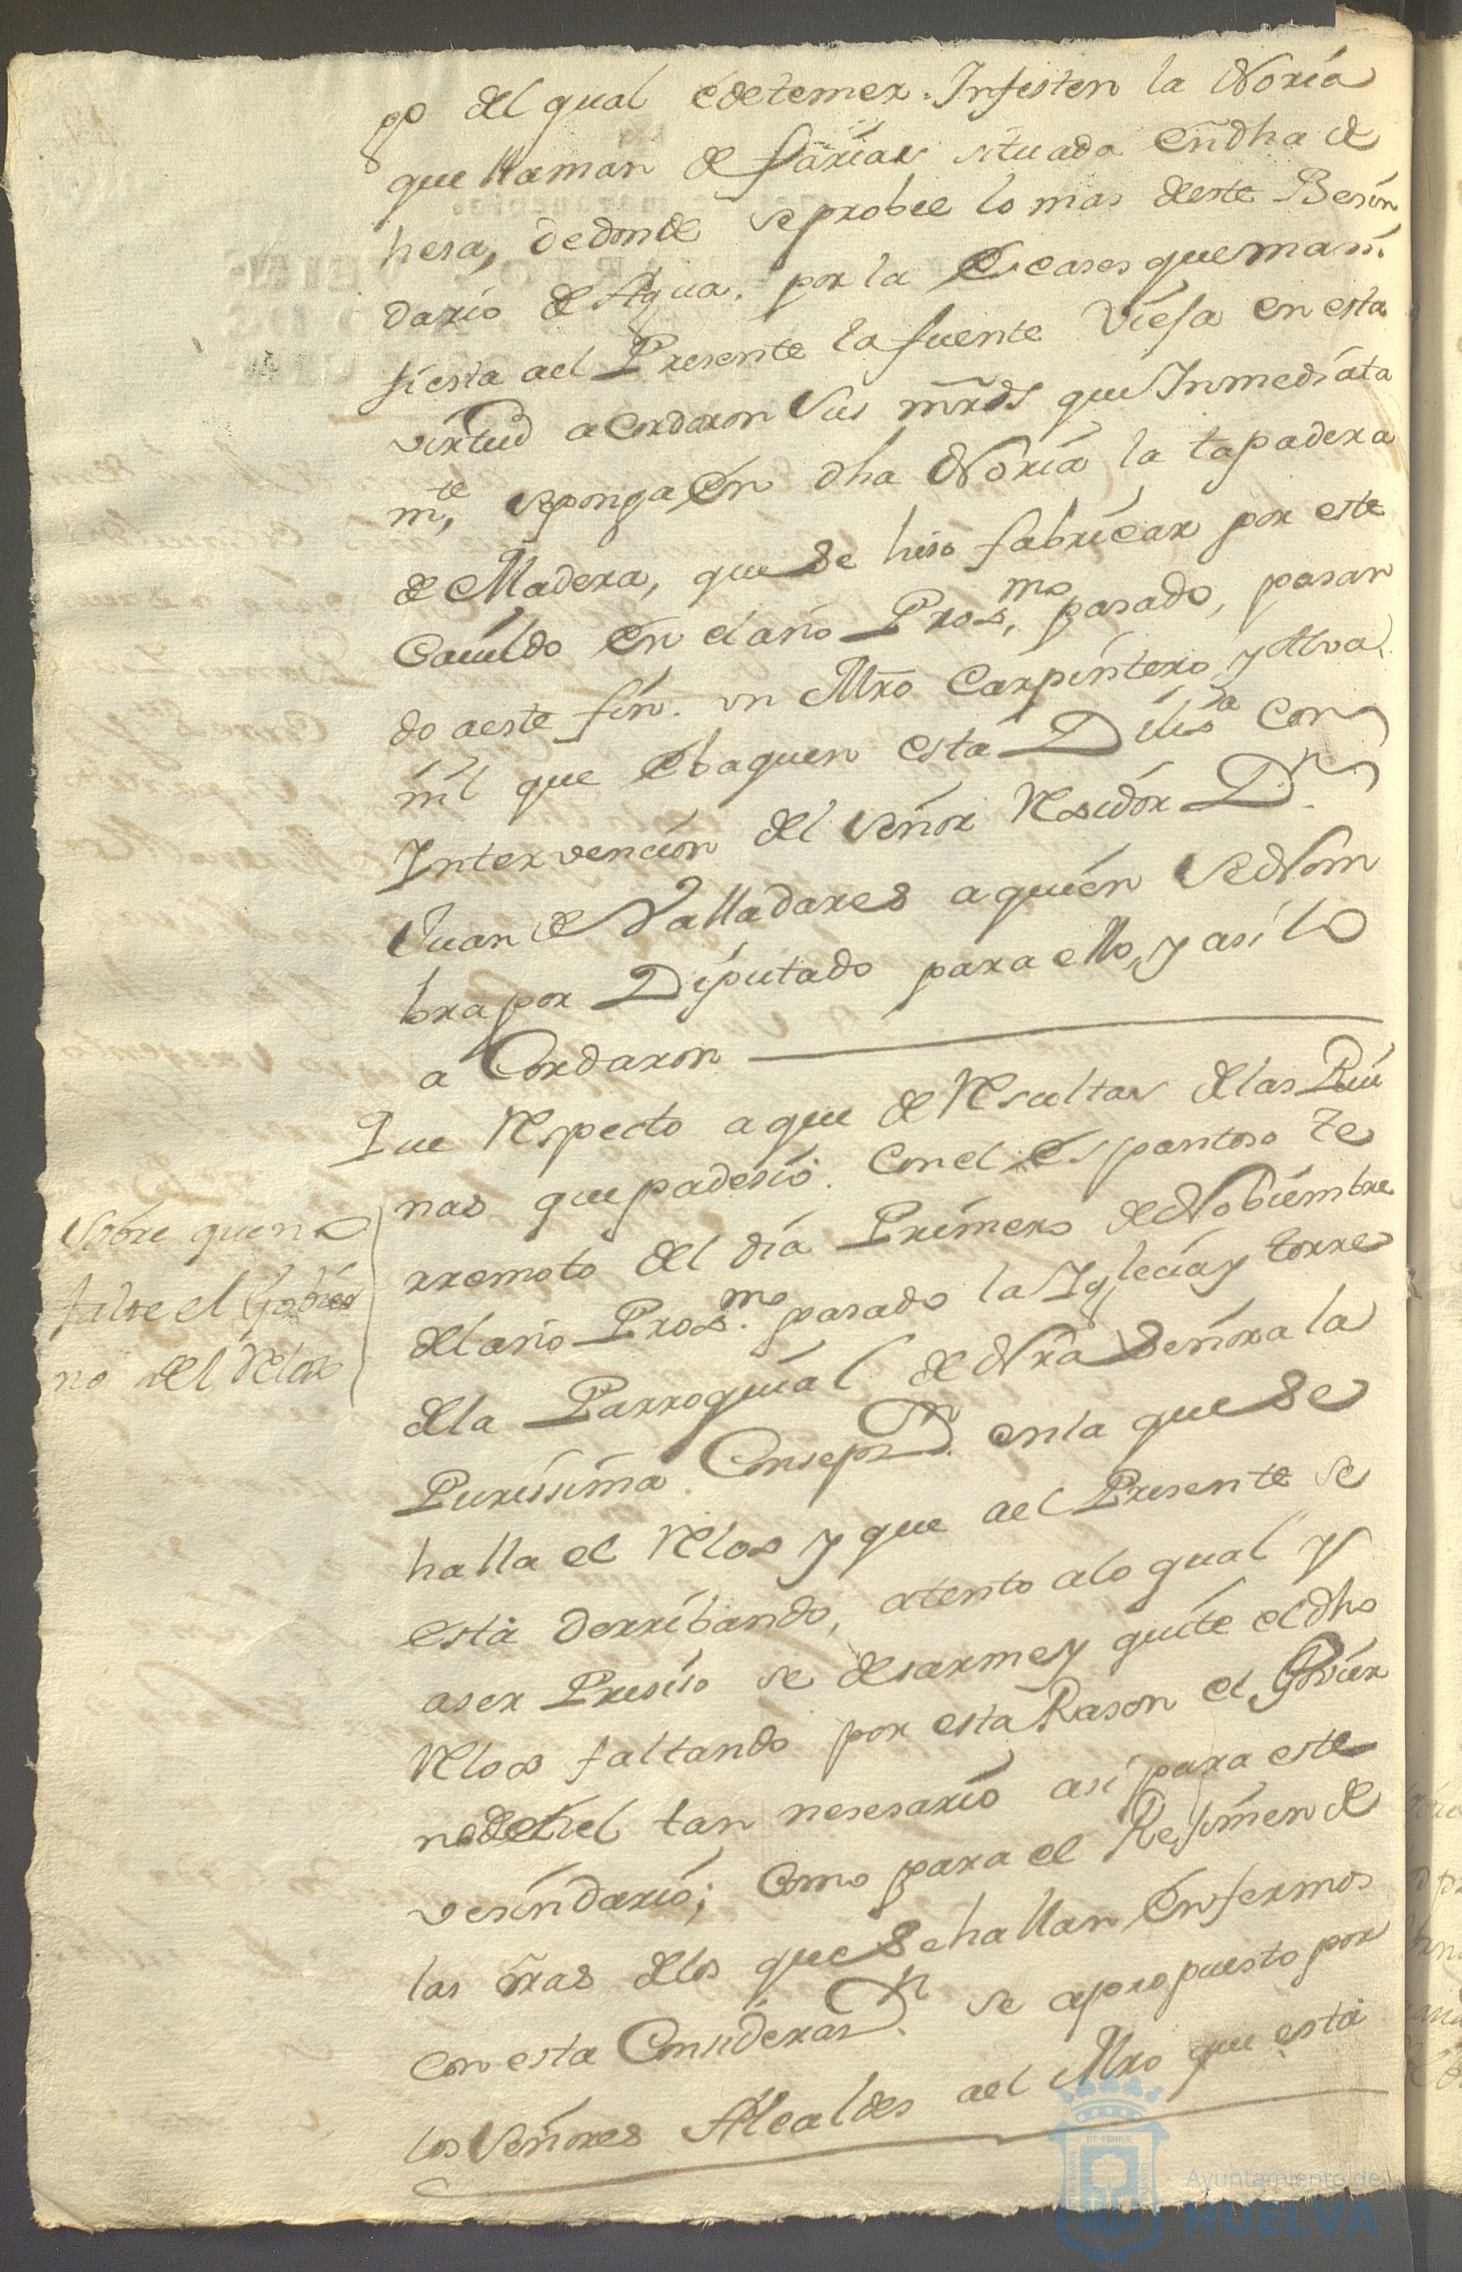 go del qual es de temer Infesten la Noria
que llaman de farias situada en dha de
hesa, de donde se probee lo mas deste Besin
dario de Agua, por la Escases que mani
fiesta ael Presente la fuente Viesa en esta
virtud acordaron Sus mrds que Inmediata
mte, se ponga en dha Noria la tapadera
de Madera, que se hiso fabricar por este
Cauildo en el año Prosmo pasado, pasan
do a este fin un Mro Carpintero y Alva
nil que Ebaquen esta Dilisa con
Intervencion del Señor Residor Dn
Juan de Valladares a quien se Nom
bra por Diputado para ello, y asi lo
a Cordaron
Que Respecto a que de Resultas de las Rui
nas que padesio con el Espantoso te
rremoto del dia Primero de Nobiembre
del año Prosmo pasado la Yglecia y torre
de la Parroquial de Nra Señora la
Purissima Consepn en la que se
halla el Relox y que ael Presente se
está derribando, atento a lo qual y
a ser Presiso se desarme y quite el dho
Relox faltando por esta Rason el Govier
no de el tan nesesario asi para este
vesindario; como para el Resimen de
las oras de los que se hallan Enfermos
con esta Considerasn se a propuesto por
los Señores Alcaldes ael Mro que está
Sobre que no
falte el Gobier
no del Relox
Ayuntamiento de
HUELVA